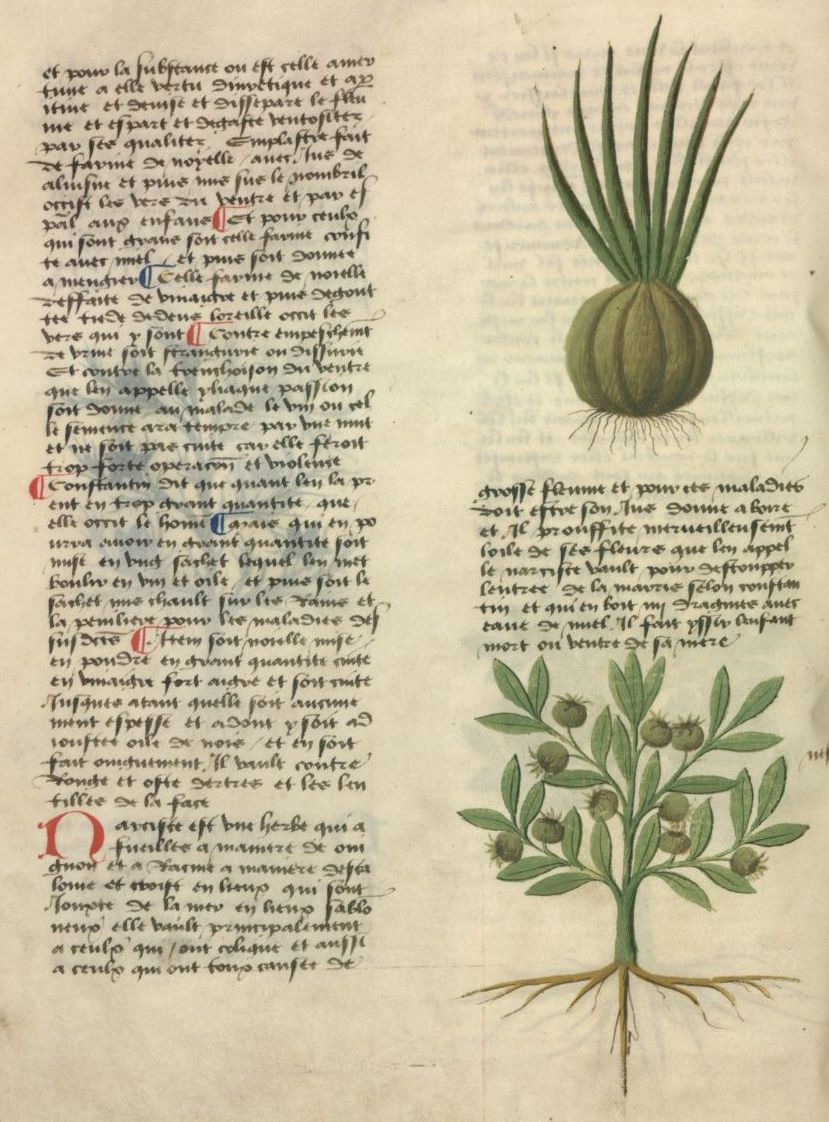 et pour la substance ou est celle amer
tume a elle vertu diuretique et ap
itiue et deuise et dissepare le fleu
me et espart et degaste ventositez
par ses qualitez Emplastre fait
de farine de noyelle auec Jus de
aluisne et puis mis sus le nombril
occist les vers du ventre et par es
pal aux enfans Et pour ceulx
qui sont grans soit celle farine confi
te auec miel et puis soit donnee
a mengier Celle farine de noielle
deffaite de vinaigre et puis degout
tee tiede dedens loreille occit les
vers qui y sont Contre empeschemt
de vrine soit stranguirie ou dissurie
Et contre la trenchoison du ventre
que len appelle yliaque passion
soit donne au malade le vin ou cel
le semence ara tempre par vne nuit
et ne soit pas cuite car elle feroit
trop forte operacon et violente
Constantin dit que quant len la pr
ent en trop grant quantite que
elle occit le home Mais qui en po
urra auoir en grant quantite soit
mise en vng sachet lequel len met
boulir en vin et oile et puis soit le
sachet mis chault sur les Rains et
la penilliere pour les maladies des
susdites Item soit noielle mise
en pouldre en grant quantite cuite
en vinaigre fort aigre et soit cuite
Jusques atant quelle soit aucune
ment espesse et adont y soit ad
iouftee oile de nois et en soit
fait oinguement Il vault contre
Rouge et oste dertres et les len
tilles de la face
Narciste est vne herbe qui a
fueilles a maniere de oin
gnon et a Racine a maniere desca
loine et croist en lieux qui sont
Jouxte de la mer en lieux sablo
neux elle vault principalement
a ceulx qui ont colique et aussi
a ceulx qui ont toux causee de
grosse fleume et pour ces maladies
doit estre son Jus donne a boire
et Il prouffite merueilleusemt
loile de ses fleurs que len appel
le narcisce vault pour destoupper
lentree de la marris selon constan
tin et qui en boit iiii dragmes auec
eaue de miel Il fait yssir lenfant
mort ou ventre de sa mere